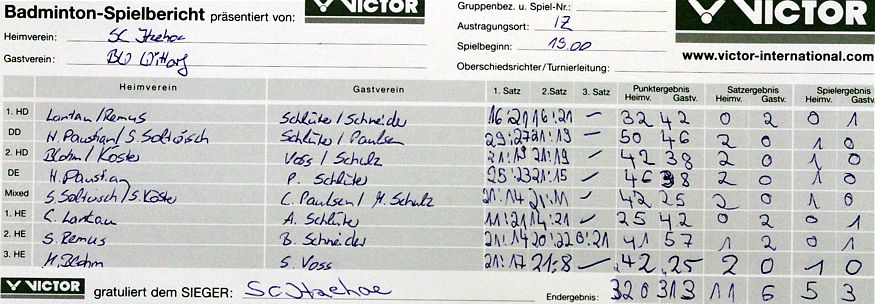 Badminton-Spielbericht präsentiert von: VICTOR
Gruppenbez. u. Spiel-Nr.:
VICTOR
Heimverein: SC Itzehoe
Austragungsort: IZ
Gastverein: BW Wittorf
Spielbeginn: 19.00
www.victor-international.com
Oberschiedsrichter/Turnierleitung:
Heimverein Gastverein 1. Satz 2. Satz 3. Satz Punktergebnis Heimv. Gastv. Satzergebnis Heimv. Gastv. Spielergebnis Heimv. Gastv.
1. HD Lantau/Remus Schlüter/Schneider 16:21 16:21 – 32 42 0 2 0 1
DD H. Paustian/S. Soltwisch Schlüter/Paulsen 29:27 21:19 – 50 46 2 0 1 0
2. HD Blohm/Köster Voss/Schulz 21:19 21:19 – 42 38 2 0 1 0
DE H. Paustian P. Schlüter 25:23 21:15 – 46 38 2 0 1 0
Mixed S. Soltwisch/S. Köster C. Paulsen/M. Schulz 21:14 21:11 – 42 25 2 0 1 0
1. HE C. Lantau A. Schlüter 11:21 14:21 – 25 42 0 2 0 1
2. HE S. Remus B. Schneider 21:14 20:22 0:21 41 57 1 2 0 1
3. HE M. Blohm S. Voss 21:17 21:8 – 42 25 2 0 1 0
VICTOR gratuliert dem SIEGER: SC Itzehoe Endergebnis: 320 313 11 6 5 3